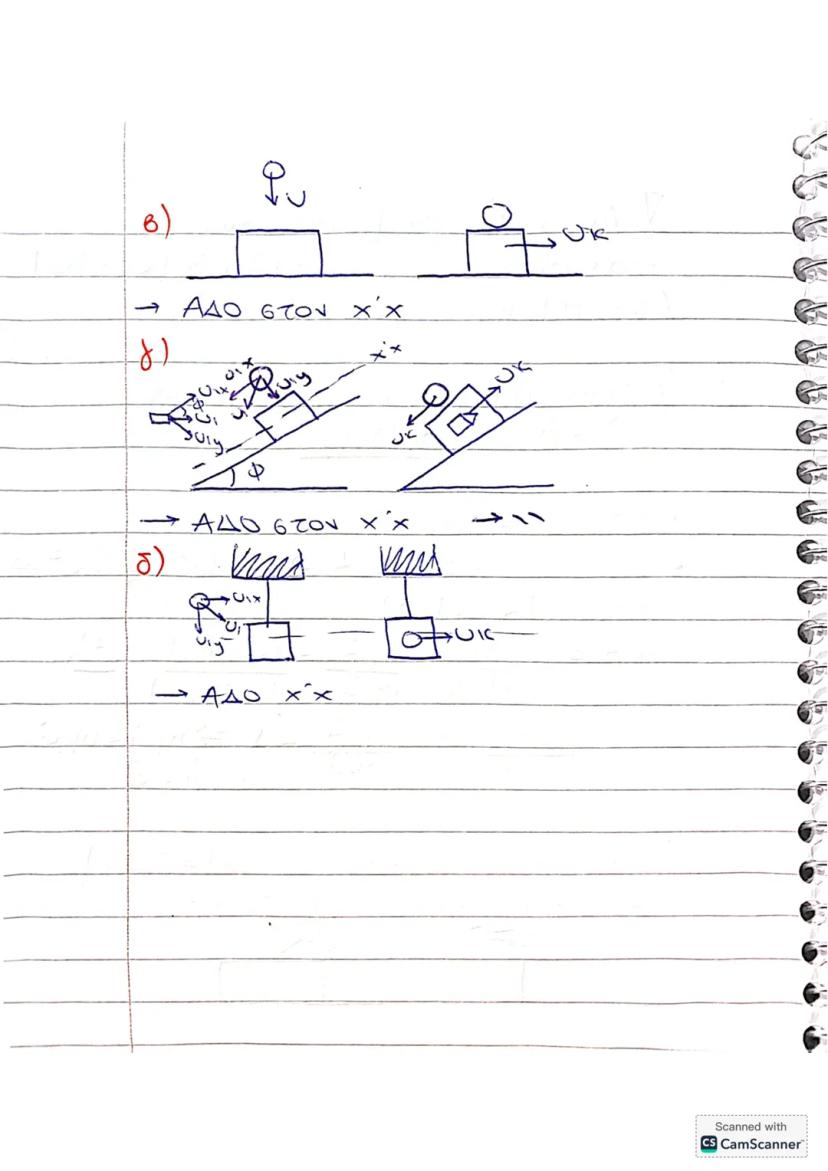 υ
β)
υκ
→ ΑΔΟ στον x'x
γ)
x'x
υ1x υ1x υ1y
φ
υ1
υ1y
φ
υκ
υκ
→ ΑΔΟ στον x'x → 〃
δ)
υ1x
υ1
υ1y
υκ
→ ΑΔΟ x'x
Scanned with
CS CamScanner